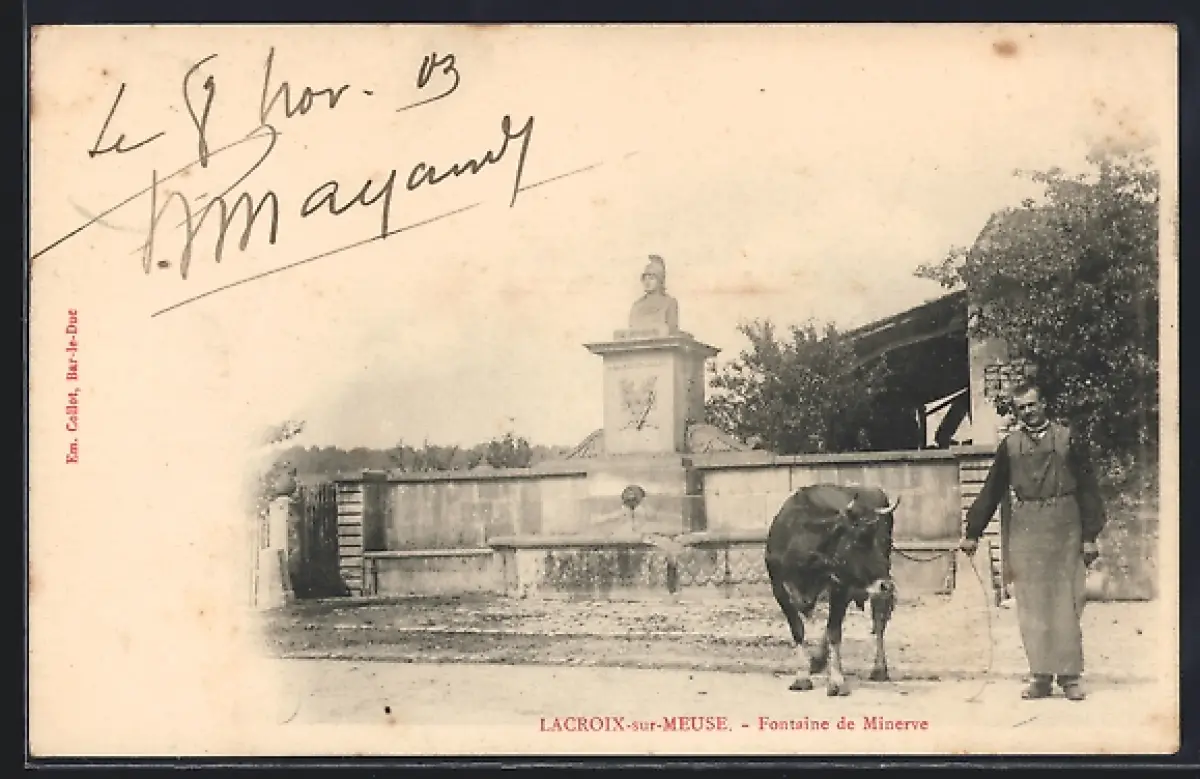 Le 8 Nov. 03
Mayaud
Em. Collot, Bar-le-Duc
LACROIX-sur-MEUSE. - Fontaine de Minerve